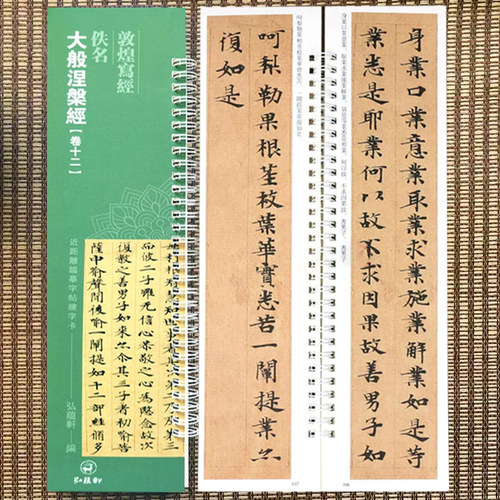 敦煌寫經
佚名
大般涅槃經【卷十二】
近距離臨摹字帖練字卡——弘蘊軒 編
而彼二子雖无信心恭敬之心爲愍念故次
復教之善男子如來亦尒其三子者初喻菩
薩中喻聲聞後喻一闡提如十二部經脩多
弘蕴軒
身業口業意業取業求業施業解業如是等
業悉是耶業何以故不求因果故善男子如
呵梨勒果根莖枝葉華實悉苦一闡提業亦
復如是